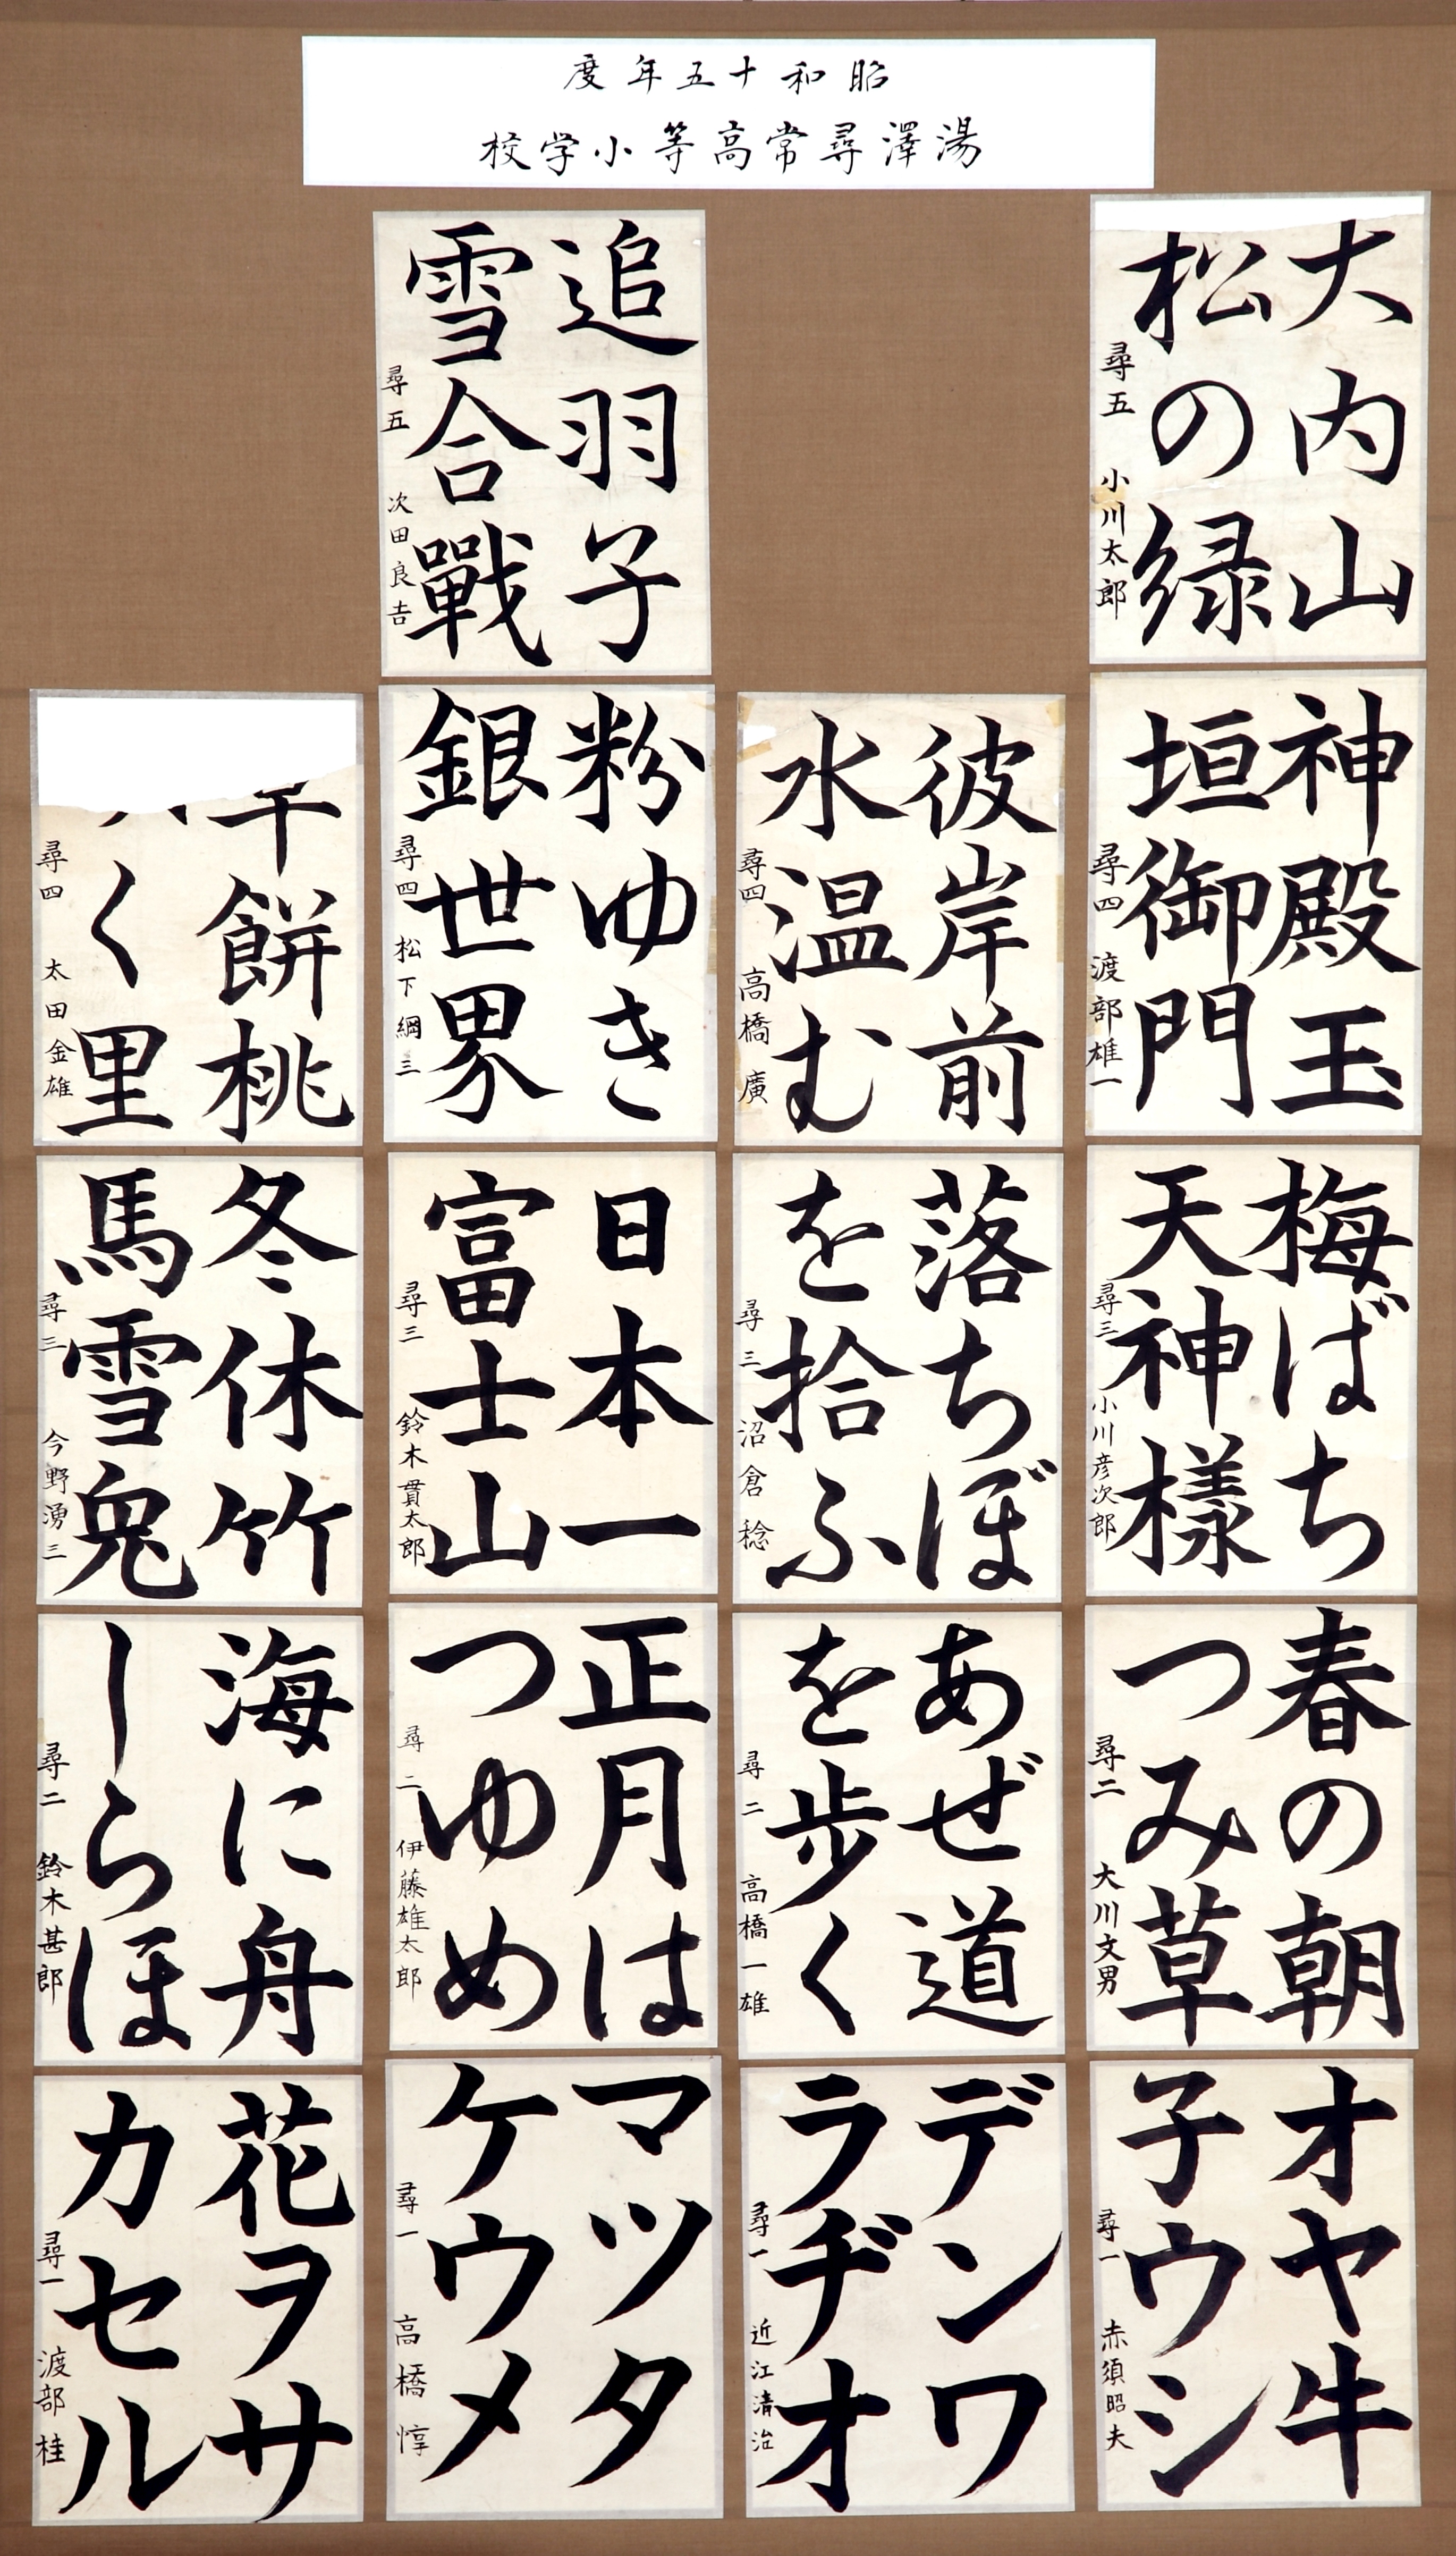 昭和十五年度
湯澤尋常高等小学校
大内山
松の緑
尋五 小川太郎
神殿玉
垣御門
尋四 渡部雄一
梅ばち
天神様
尋三 小川彦次郎
春の朝
つみ草
尋二 大川文男
オヤ牛
子ウシ
尋一 赤須昭夫
彼岸前
水温む
尋四 高橋廣
落ちぼ
を拾ふ
尋三 沼倉稔
あぜ道
を歩く
尋二 高橋一雄
デンワ
ラヂオ
尋一 近江清治
追羽子
雪合戰
尋五 次田良吉
粉ゆき
銀世界
尋四 松下綱三
日本一
富士山
尋三 鈴木貫太郎
正月は
つゆめ
尋二 伊藤雄太郎
マツタ
ケウメ
尋一 高橋惇
餅桃
く里
尋四 太田金雄
冬休竹
馬雪兎
尋三 今野湧三
海に舟
しらほ
尋二 鈴木甚郎
花ヲサ
カセル
尋一 渡部桂